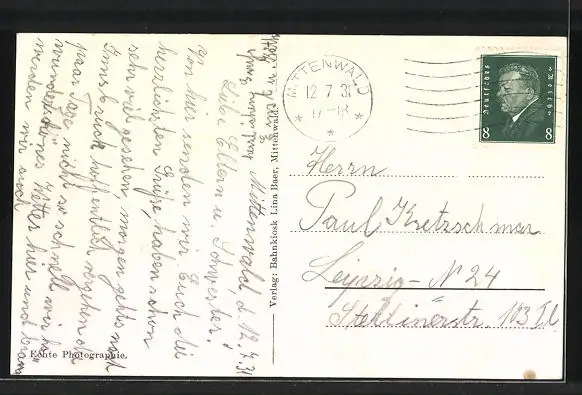 Mittenwald, d. 12.7.31
Liebe Eltern u. Schwester!
Von hier senden wir Euch die
herzlichsten Grüße, haben schon
sehr viel gesehen, morgen gehts nach
Innsbruck hoffentlich vergehen die
paar Tage nicht so schnell wir ha
wunderschönes Wetter hier und braun
werden wir auch
Echte Photographie.
Verlag: Bahnkiosk Lina Baer, Mittenwald
MITTENWALD
12 7 31
17-18
Deutsches Reich
8 8
Herrn
Paul Kretzschmar
Leipzig - N 24
Stettinerstr. 103 I.l